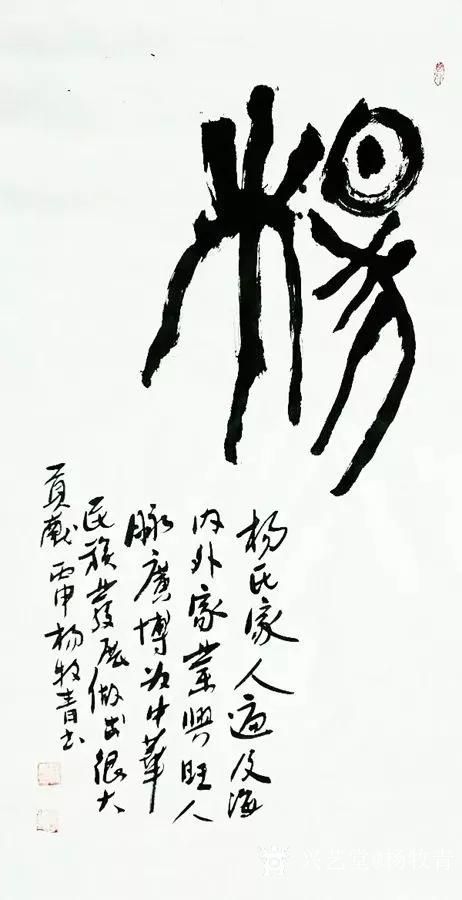 楊
杨氏家人遍及海
内外家業興旺人
脉廣博为中華
民族發展做出很大
貢献 丙申 杨牧青书
兴艺堂@杨牧青